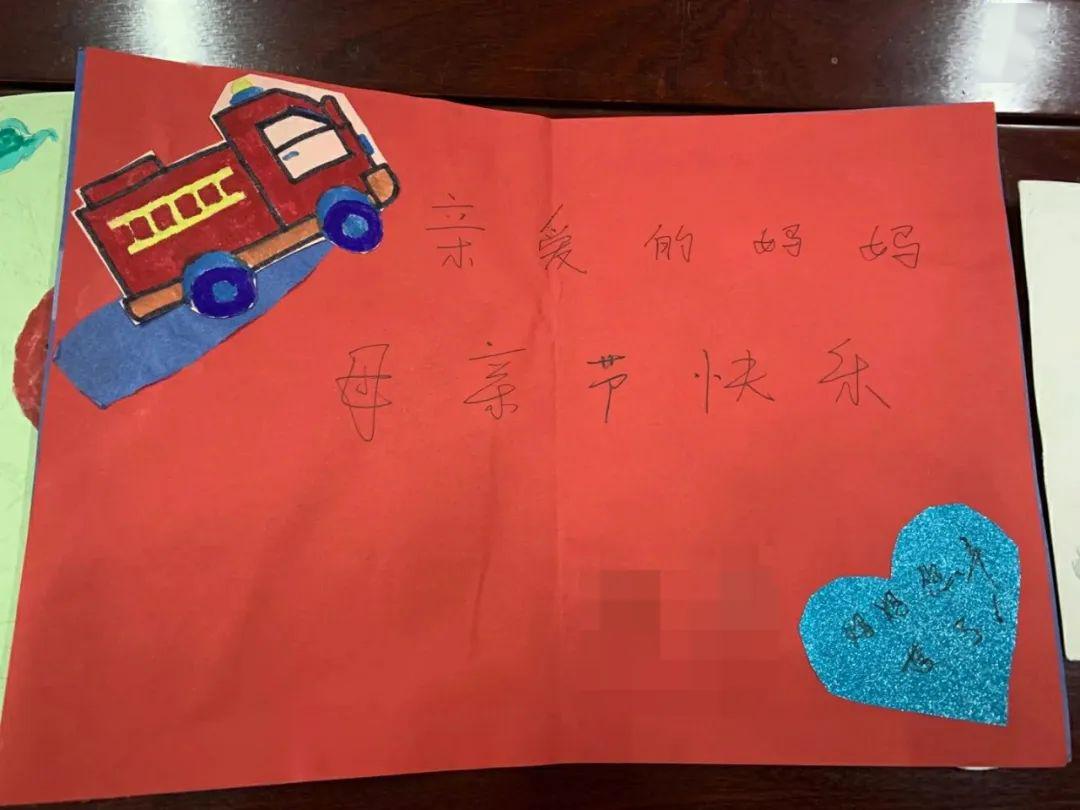 亲爱的妈妈
母亲节快乐
妈妈您辛
苦了！